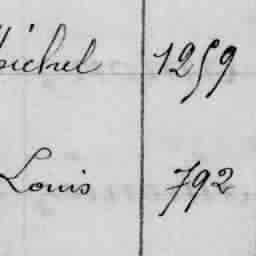 Michel 1259
Louis 792